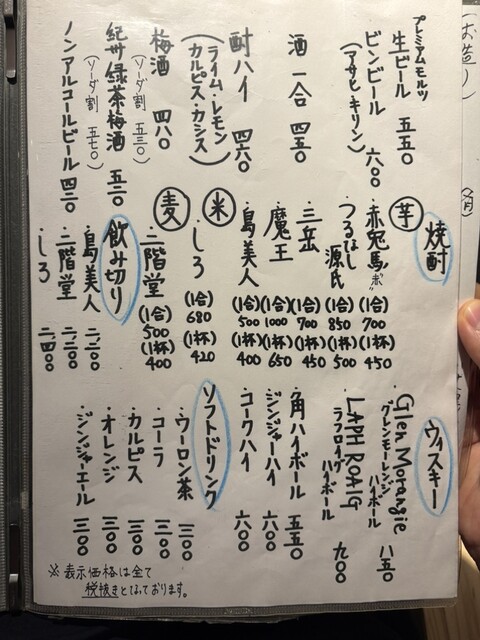 プレミアムモルツ
生ビール 五五〇
ビンビール 六〇〇
(アサヒ・キリン)
酒 一合 四五〇
酎ハイ 四六〇
(ライム・レモン
カルピス・カシス)
梅酒 四八〇
(ソーダ割 五三〇)
紀州緑茶梅酒 五二〇
(ソーダ割 五七〇)
ノンアルコールビール 四二〇
焼酎
芋
・赤兎馬"赤" (1合)700 (1杯)450
・つるなし源氏 (1合)850 (1杯)500
・三岳 (1合)700 (1杯)450
・魔王 (1合)1000 (1杯)650
・島美人 (1合)500 (1杯)400
米
・しろ (1合)680 (1杯)420
麦
・二階堂 (1合)500 (1杯)400
飲み切り
・島美人 二二〇〇
・二階堂 二二〇〇
・しろ 二四〇〇
ウィスキー
・Glen Morangie
グレンモーレンジ
ハイボール 八五〇
・LAPHROAIG
ラフロイグ
ハイボール 九〇〇
・角ハイボール 五五〇
・ジンジャーハイ 六〇〇
・コークハイ 六〇〇
ソフトドリンク
・ウーロン茶 三〇〇
・コーラ 三〇〇
・カルピス 三〇〇
・オレンジ 三〇〇
・ジンジャーエール 三〇〇
※表示価格は全て
税抜きとなっております。
(お造り)